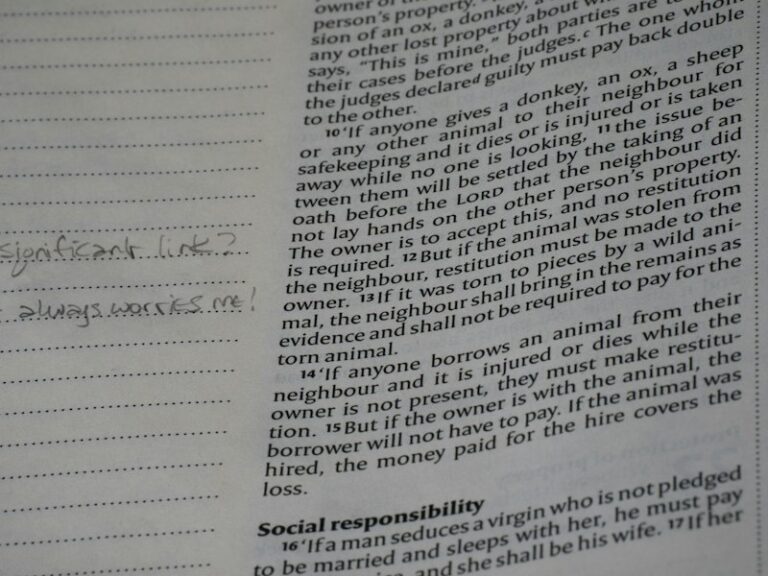 owner of the
person's property.
sion of an ox, a donkey, a
any other lost property about
says, "This is mine," both parties are to
their cases before the judges.c The one whom
the judges declared guilty must pay back double
to the other.
10 'If anyone gives a donkey, an ox, a sheep
or any other animal to their neighbour for
safekeeping and it dies or is injured or is taken
away while no one is looking, 11 the issue be-
tween them will be settled by the taking of an
oath before the LORD that the neighbour did
not lay hands on the other person's property.
The owner is to accept this, and no restitution
is required. 12 But if the animal was stolen from
the neighbour, restitution must be made to the
owner. 13 If it was torn to pieces by a wild ani-
mal, the neighbour shall bring in the remains as
evidence and shall not be required to pay for the
torn animal.
14 'If anyone borrows an animal from their
neighbour and it is injured or dies while the
owner is not present, they must make restitu-
tion. 15 But if the owner is with the animal, the
borrower will not have to pay. If the animal was
hired, the money paid for the hire covers the
loss.
Social responsibility
16 'If a man seduces a virgin who is not pledged
to be married and sleeps with her, he must pay
and she shall be his wife. 17 If her
significant link?
always worries me!